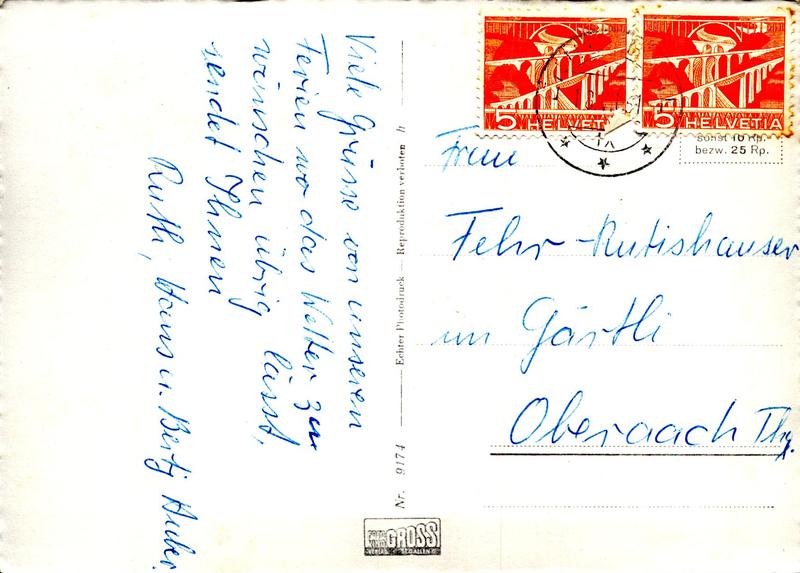 Viele Grüsse von unseren
Ferien wo das Wetter zu
wünschen übrig lässt,
sendet Ihnen
Ruth, Hans u. Berty Huber.
Nr. 9174 — Echter Photodruck — Reproduktion verboten h
GROSS
VERLAG ST. GALLEN
5 HELVETIA
5 HELVETIA
sonst 10 Rp.
bezw. 25 Rp.
Frau
Fehr-Rutishauser
im Gärtli
Oberaach Thg.